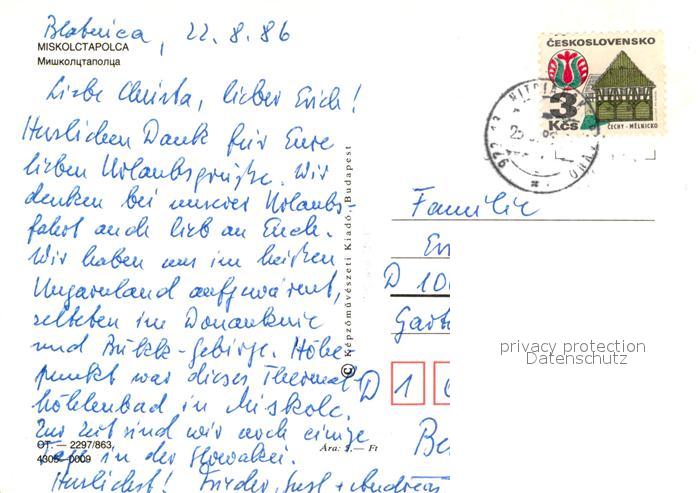 Blatnica, 22.8.86
MISKOLCTAPOLCA
Мишколцтаполца
Liebe Christa, lieber Erich!
Herzlichen Dank für Eure
lieben Urlaubsgrüße. Wir
denken bei unserer Urlaubs-
fahrt auch lieb an Euch.
Wir haben uns im heißen
Ungarnland aufgewärmt,
zelteten im Donauknie
und Bükk-Gebirge. Höhe-
punkt war dieses Thermal-
höhlenbad in Miskolc.
Zur Zeit sind wir noch einige
Tage in der Slowakei.
Herzlichst! Frieder, + Andreas
OT. — 2297/863
4305—0009
Ára: 3,— Ft
© Képzőművészeti Kiadó, Budapest
ČESKOSLOVENSKO
3
Kčs
ČECHY - MĚLNICKO
Familie
D 10
D 1
Be
privacy protection
Datenschutz